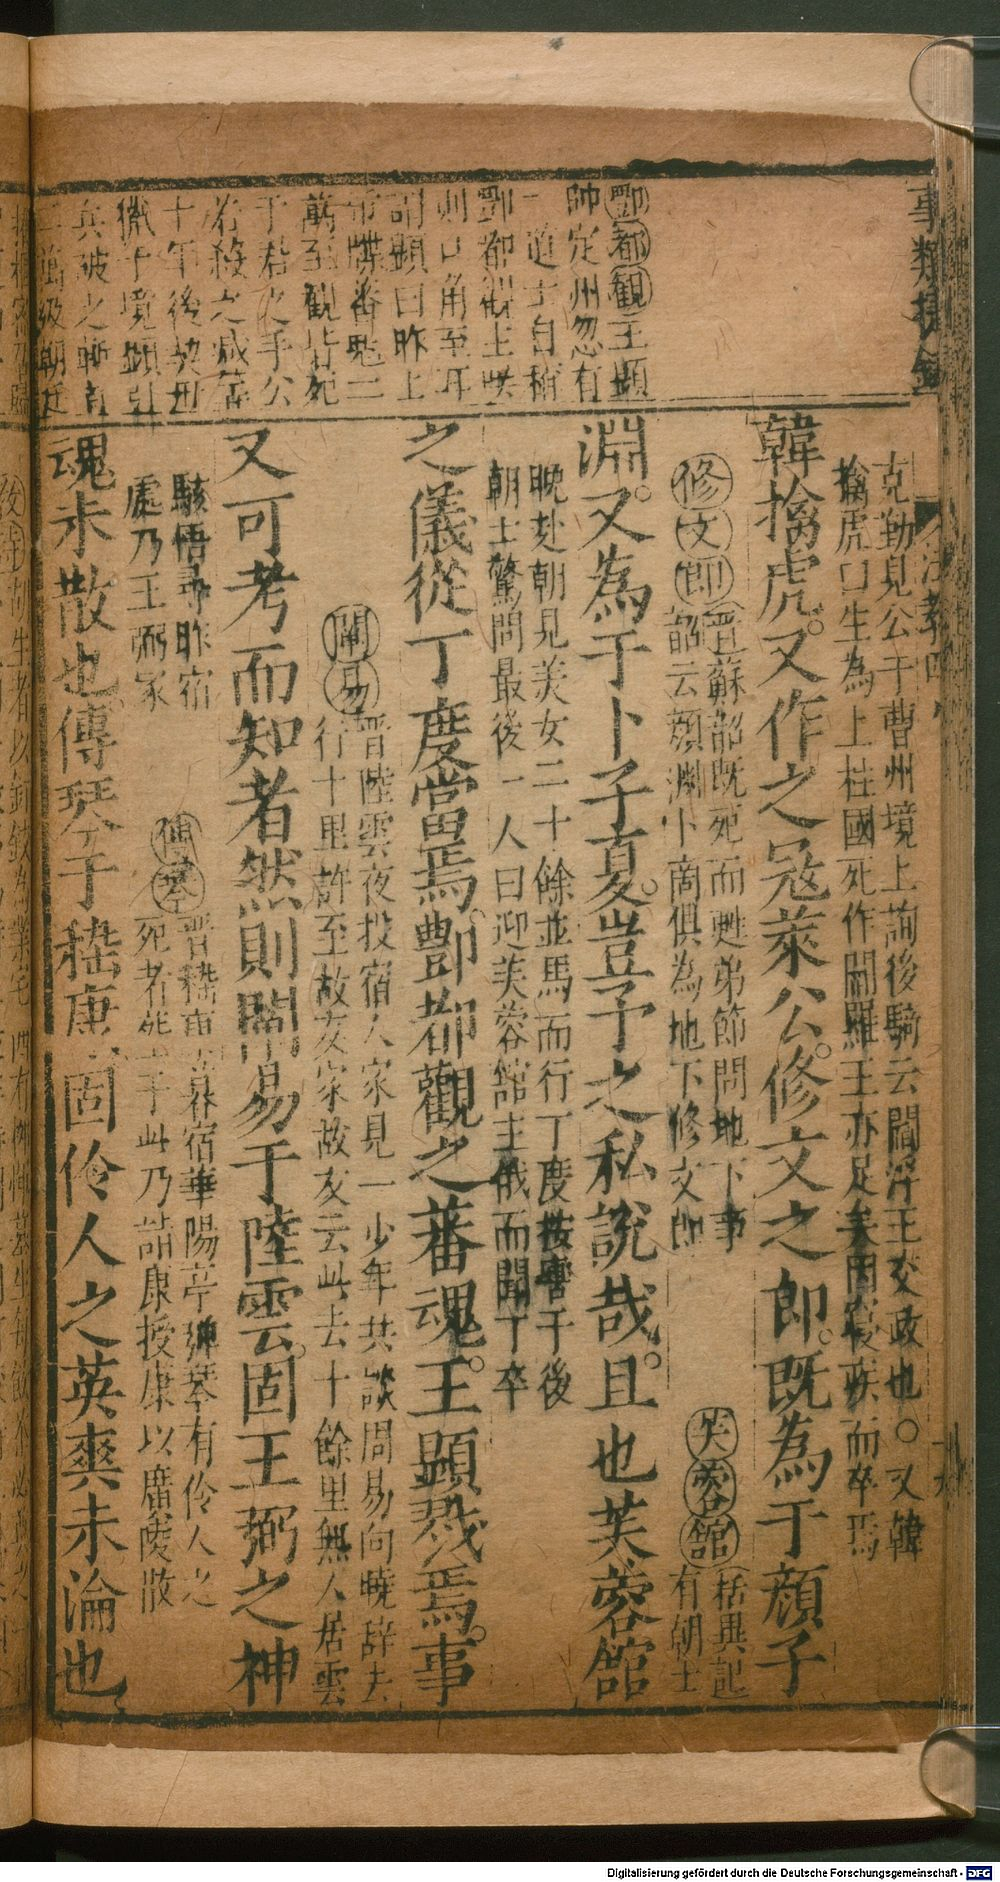 事類捷錄
酆都觀王顯
帥定州忽有
一道士自稱
酆都觀主笑
則口角至耳
謂顯曰昨上
帝牒番魂二
萬至觀皆死
于君之手公
若殺之減筭
十年後契丹
獵于境顯引
兵破之斬首
二萬級朝廷
克勤見公于曹州境上詢後騎云閻浮王交政也〇又韓
擒虎曰生為上柱國死作閻羅王亦足矣因寢疾而卒焉
韓擒虎又作之寇萊公修文之郎既為于顔子
修文郎晋蘇韶既死而甦弟節問地下事
韶云顔淵卜商俱為地下修文郎
芙蓉館括異記
有朝士
淵又為于卜子夏豈予之私說哉且也芙蓉館
晚赴朝見美女二十餘並馬而行丁度按轡于後
朝士驚問最後一人曰迎芙蓉館主俄而聞丁卒
之儀從丁度當焉酆都觀之蕃魂王顯戮焉事
閘易晋陸雲夜投宿人家見一少年共談周易向曉辞去
行十里許至故友家故友云此去十餘里無人居雲
又可考而知者然則閘易于陸雲固王弼之神
駭悟尋昨宿
處乃王弼冢
傳琴晋嵇康暮宿華陽亭弹琴有伶人之
死者 于此乃詣康授康以廣陵散
魂未散也傳琴于嵇康固伶人之英爽未淪也
Digitalisierung gefördert durch die Deutsche Forschungsgemeinschaft - DFG